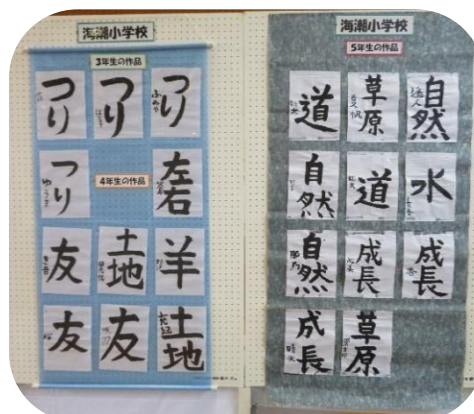 海潮小学校
3年生の作品
つり
つり
つり
つり
4年生の作品
左右
友
土地
羊
友
友
土地
海潮小学校
5年生の作品
道
草原
自然
自然
道
水
自然
成長
成長
成長
草原